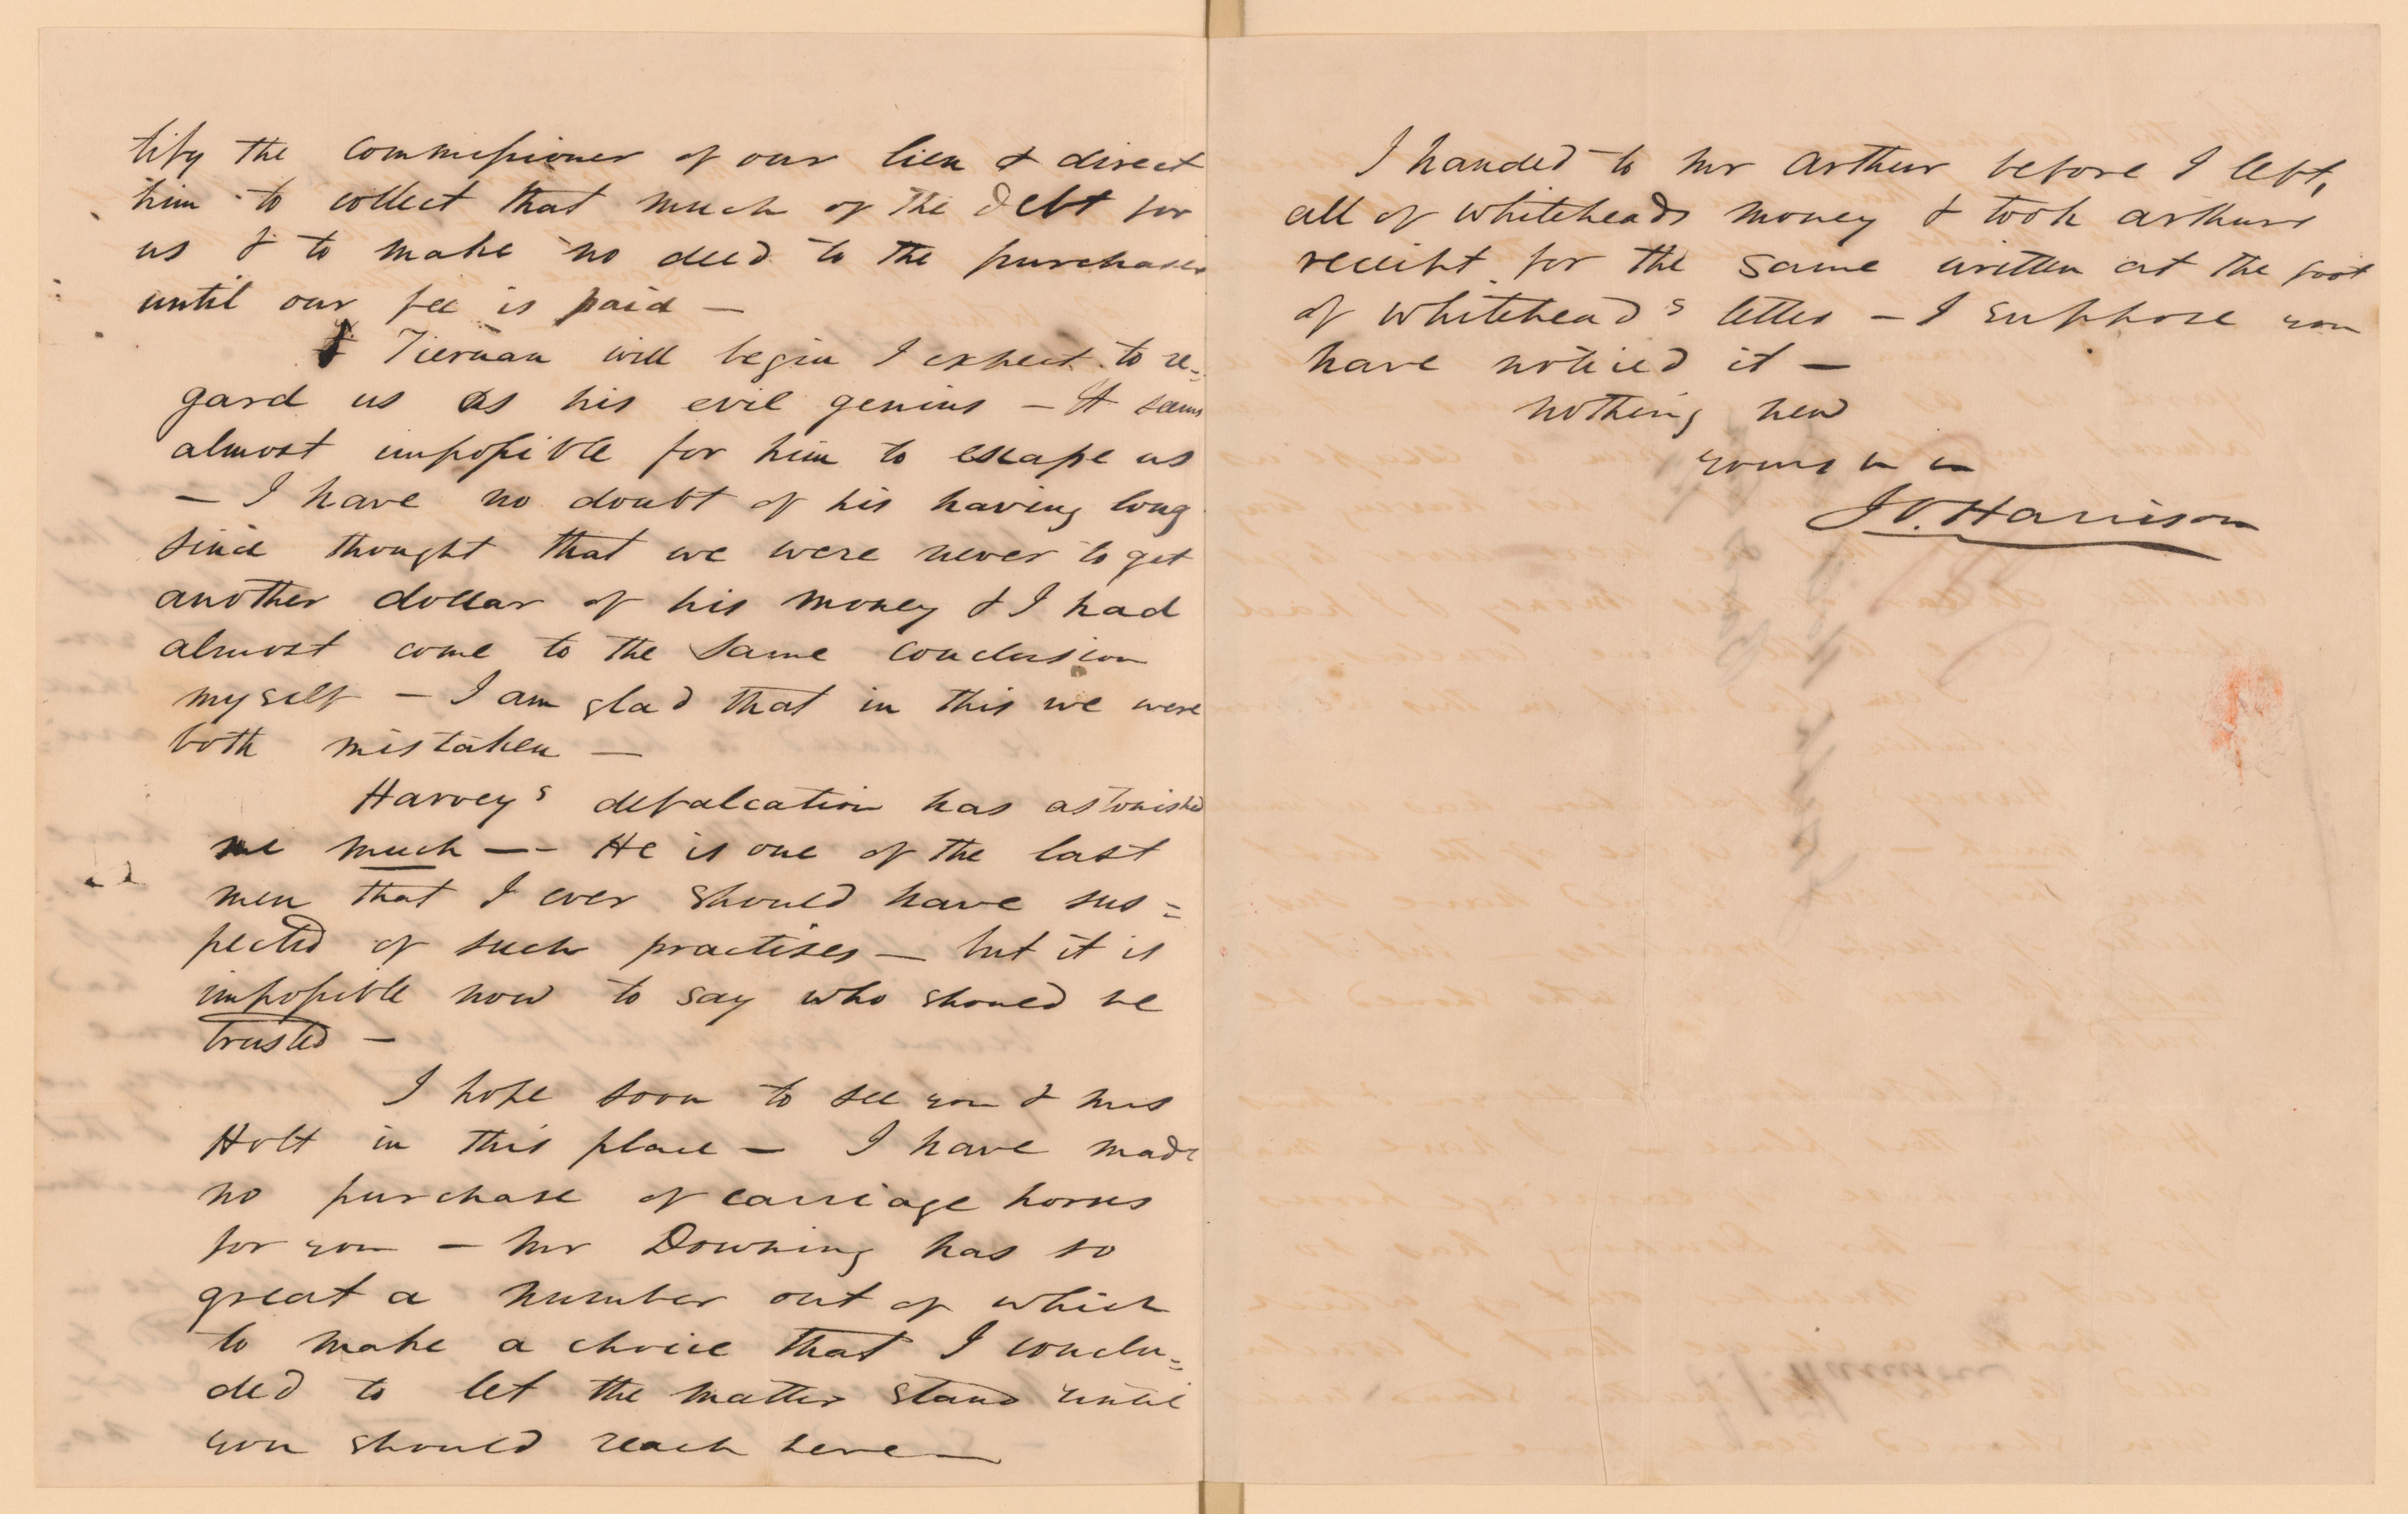 tify the commissioner of our lien & direct
him to collect that much of the debt for
us & to make no deed to the purchaser
until our fee is paid —
Tiernan will begin I expect to re-
gard us as his evil genius — It seems
almost impossible for him to escape us
— I have no doubt of his having long
since thought that we were never to get
another dollar of his money & I had
almost come to the same conclusion
myself — I am glad that in this we were
both mistaken —
Harvey's defalcation has astonished
me much — He is one of the last
men that I ever should have sus=
pected of such practises — but it is
impossible now to say who should be
trusted —
I hope soon to see you & Mrs
Holt in this place — I have made
no purchase of carriage horses
for you — Mr Downing has so
great a number out of which
to make a choice that I conclu=
ded to let the matter stand until
you should reach here —
I handed to Mr Arthur before I left,
all of Whiteheads money & took Arthurs
receipt for the same written at the foot
of Whitehead's letter — I suppose you
have noticed it —
Nothing new
Yours
J V. Harrison